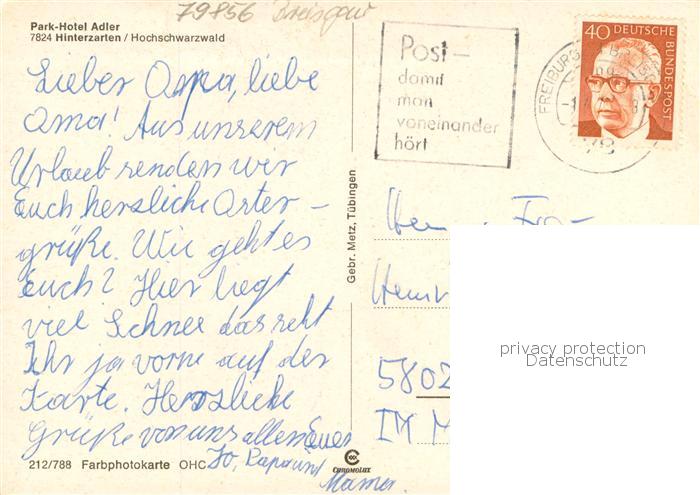 79856 Breisgau
Park-Hotel Adler
7824 Hinterzarten / Hochschwarzwald
Post-
damit
man
voneinander
hört
40 DEUTSCHE
BUNDESPOST
FREIBURG
78
Lieber Ospa, liebe
Oma! Aus unserem
Urlaub senden wir
Euch herzliche Oster-
grüße. Wie geht es
Euch? Hier liegt
viel Schnee das seht
Ihr ja vorne auf der
Karte. Herzliche
Grüße von uns allen Euer
Jo, Papa und
Mama.
Gebr. Metz, Tübingen
5802
212/788 Farbphotokarte OHC
CHROMOLUX
privacy protection
Datenschutz